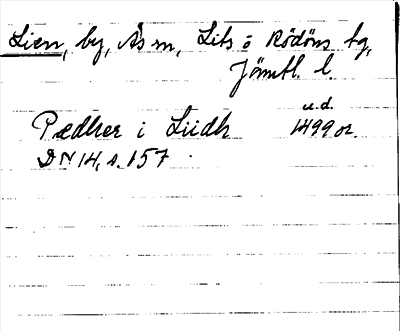 Lien, by, Ås sn, Lits o Rödöns tg,
Jämtl. l.
u.d.
Pædher i Liidh 1499 or.
DN 14, s. 157.